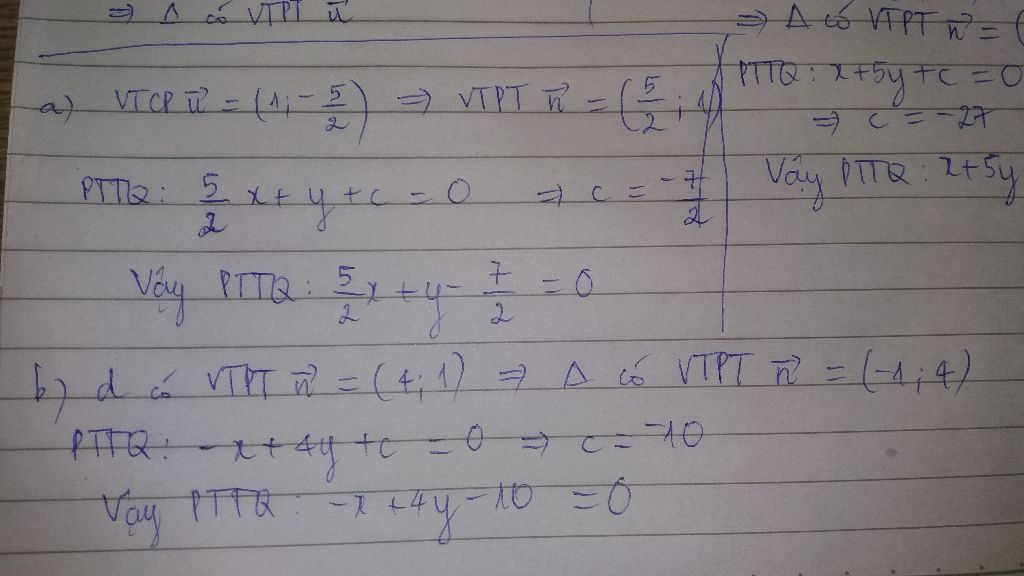 ⇒ Δ có VTPT n⃗
⇒ Δ có VTPT n⃗ = (
a) VTCP u⃗ = (1; -5/2) ⇒ VTPT n⃗ = (5/2; 1)
PTTQ: 5/2 x + y + c = 0 ⇒ c = -7/2
Vậy PTTQ: 5/2 x + y - 7/2 = 0
PTTQ: x+5y+c = 0
⇒ c = -27
Vậy PTTQ: x+5y
b) d có VTPT n⃗ = (4; 1) ⇒ Δ có VTPT n⃗ = (-1; 4)
PTTQ: -x + 4y + c = 0 ⇒ c = -10
Vậy PTTQ: -x + 4y - 10 = 0